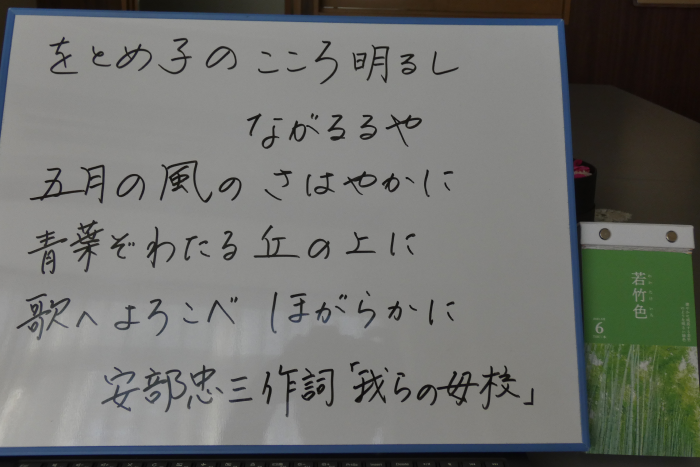 をとめ子のこころ明るし
ながるるや
五月の風のさはやかに
青葉ぞわたる丘の上に
歌へよろこべほがらかに
安部忠三作詞「我らの母校」
若竹色
6